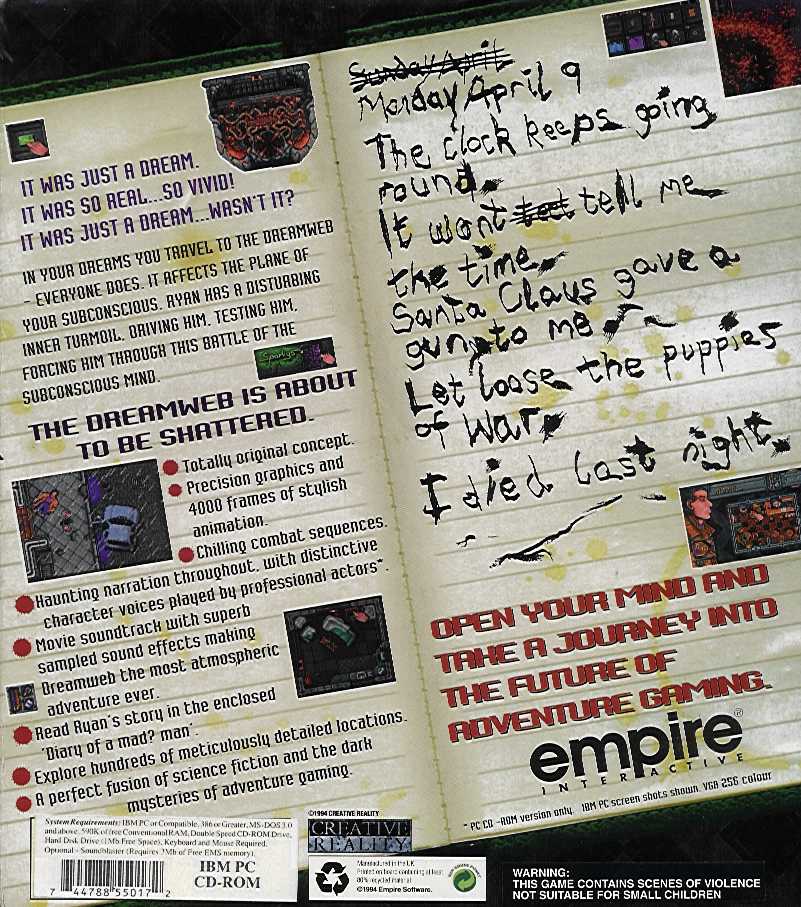 IT WAS JUST A DREAM.
IT WAS SO REAL...SO VIVID!
IT WAS JUST A DREAM...WASN'T IT?
IN YOUR DREAMS YOU TRAVEL TO THE DREAMWEB
- EVERYONE DOES. IT AFFECTS THE PLANE OF
YOUR SUBCONSCIOUS. RYAN HAS A DISTURBING
INNER TURMOIL, DRIVING HIM, TESTING HIM,
FORCING HIM THROUGH THIS BATTLE OF THE
SUBCONSCIOUS MIND.
Sparky's
THE DREAMWEB IS ABOUT
TO BE SHATTERED.
Totally original concept.
Precision graphics and
4000 frames of stylish
animation.
Chilling combat sequences.
Haunting narration throughout, with distinctive
character voices played by professional actors*.
Movie soundtrack with superb
sampled sound effects making
Dreamweb the most atmospheric
adventure ever.
Read Ryan's story in the enclosed
'Diary of a mad? man'.
Explore hundreds of meticulously detailed locations.
A perfect fusion of science fiction and the dark
mysteries of adventure gaming.
System Requirements: IBM PC or Compatible, 386 or Greater, MS-DOS 3.0
and above, 590K of free Conventional RAM, Double Speed CD-ROM Drive,
Hard Disk Drive (1Mb Free Space), Keyboard and Mouse Required.
Optional - Soundblaster (Requires 2Mb of Free EMS memory).
IBM PC
CD-ROM
7 44788 55017 2
©1994 CREATIVE REALITY
CREATIVE
REALITY
Manufactured in the U.K.
Printed on board containing at least
80% recycled material
©1994 Empire Software.
Sunday April
Monday April 9
The clock keeps going
round.
It wont teel tell me
the time.
Santa Claus gave a
gun to me.
Let loose the puppies
of War.
I died last night.
OPEN YOUR MIND AND
TAKE A JOURNEY INTO
THE FUTURE OF
ADVENTURE GAMING.
empire®
INTERACTIVE
* PC CD-ROM version only. IBM PC screen shots shown. VGA 256 colour
WARNING:
THIS GAME CONTAINS SCENES OF VIOLENCE
NOT SUITABLE FOR SMALL CHILDREN